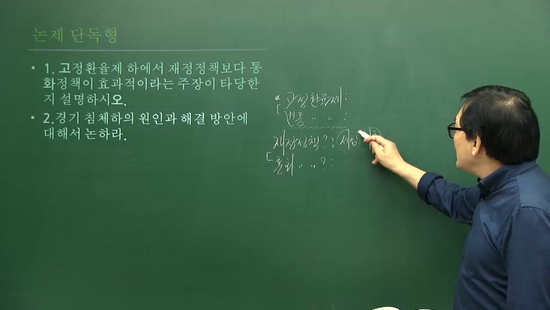 논제 단독형
• 1. 고정환율제 하에서 재정정책보다 통
화정책이 효과적이라는 주장이 타당한
지 설명하시오.
• 2.경기 침체하의 원인과 해결 방안에
대해서 논하라.
* 고정환율제:
변동 〃 〃 :
재정정책? :
통화 〃 〃 ? :